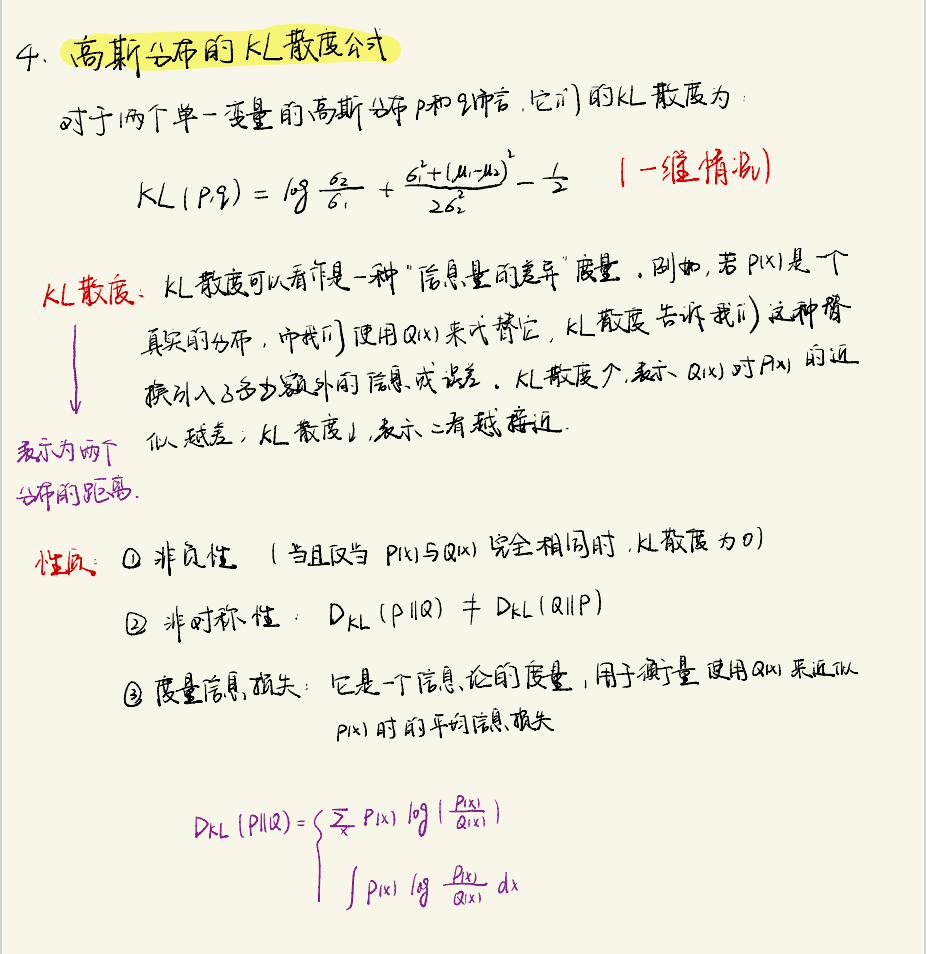 4. 高斯分布的KL散度公式
对于两个单一变量的高斯分布p和q而言，它们的KL散度为：
KL(p,q) = log σ₂/σ₁ + (σ₁²+(μ₁-μ₂)²)/(2σ₂²) - 1/2 （一维情况）
KL散度：KL散度可以看作是一种"信息量的差异"度量。例如，若P(x)是一个
真实的分布，而我们使用Q(x)来代替它，KL散度告诉我们这种替
换引入了多少额外的信息或误差。KL散度↑，表示Q(x)对P(x)的近
似越差；KL散度↓，表示二者越接近.
表示为两个
分布的距离.
性质：① 非负性 （当且仅当P(x)与Q(x)完全相同时，KL散度为0）
② 非对称性：D_KL(P||Q) ≠ D_KL(Q||P)
③ 度量信息损失：它是一个信息论的度量，用于衡量使用Q(x)来近似
P(x)时的平均信息损失
D_KL(P||Q) = { ∑_x P(x) log(P(x)/Q(x))
∫ P(x) log P(x)/Q(x) dx